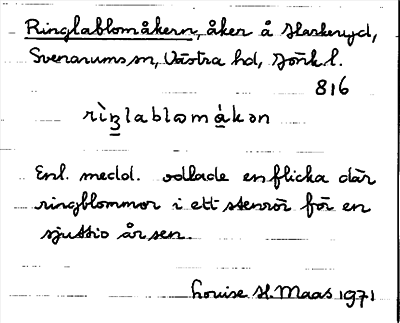 Ringlablomåkern, åker å Haskeryd,
Svenarums sn, Västra hd, Jönk l.
816
rìŋlablɔmá̱kən
Enl. medd. odlade en flicka där
ringblommor i ett stenrör för en
sjuttio år sen.
Louise H. Maas 1971